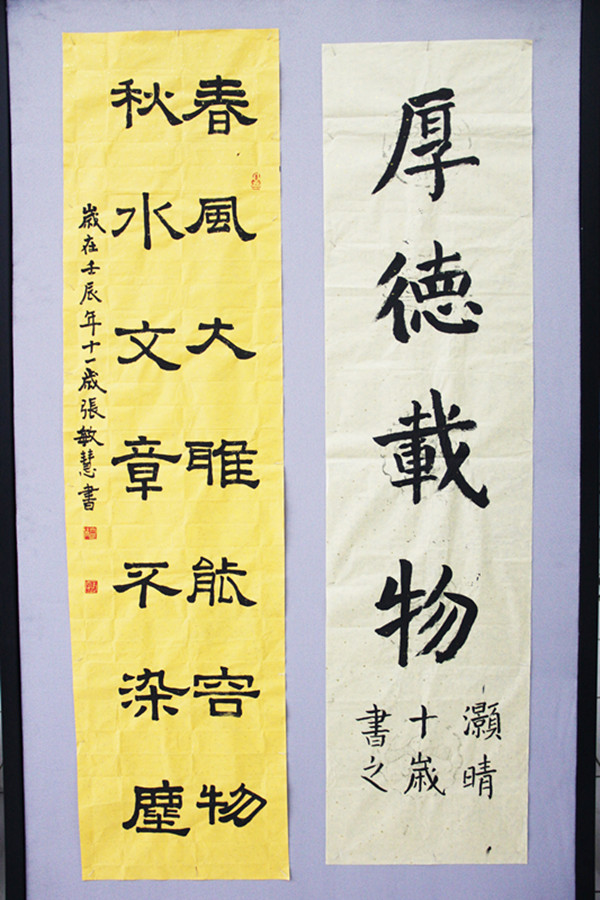 厚德載物
灝晴
十歲
書之
春風大雅能容物
秋水文章不染塵
歲在壬辰年十一歲張敏慧書